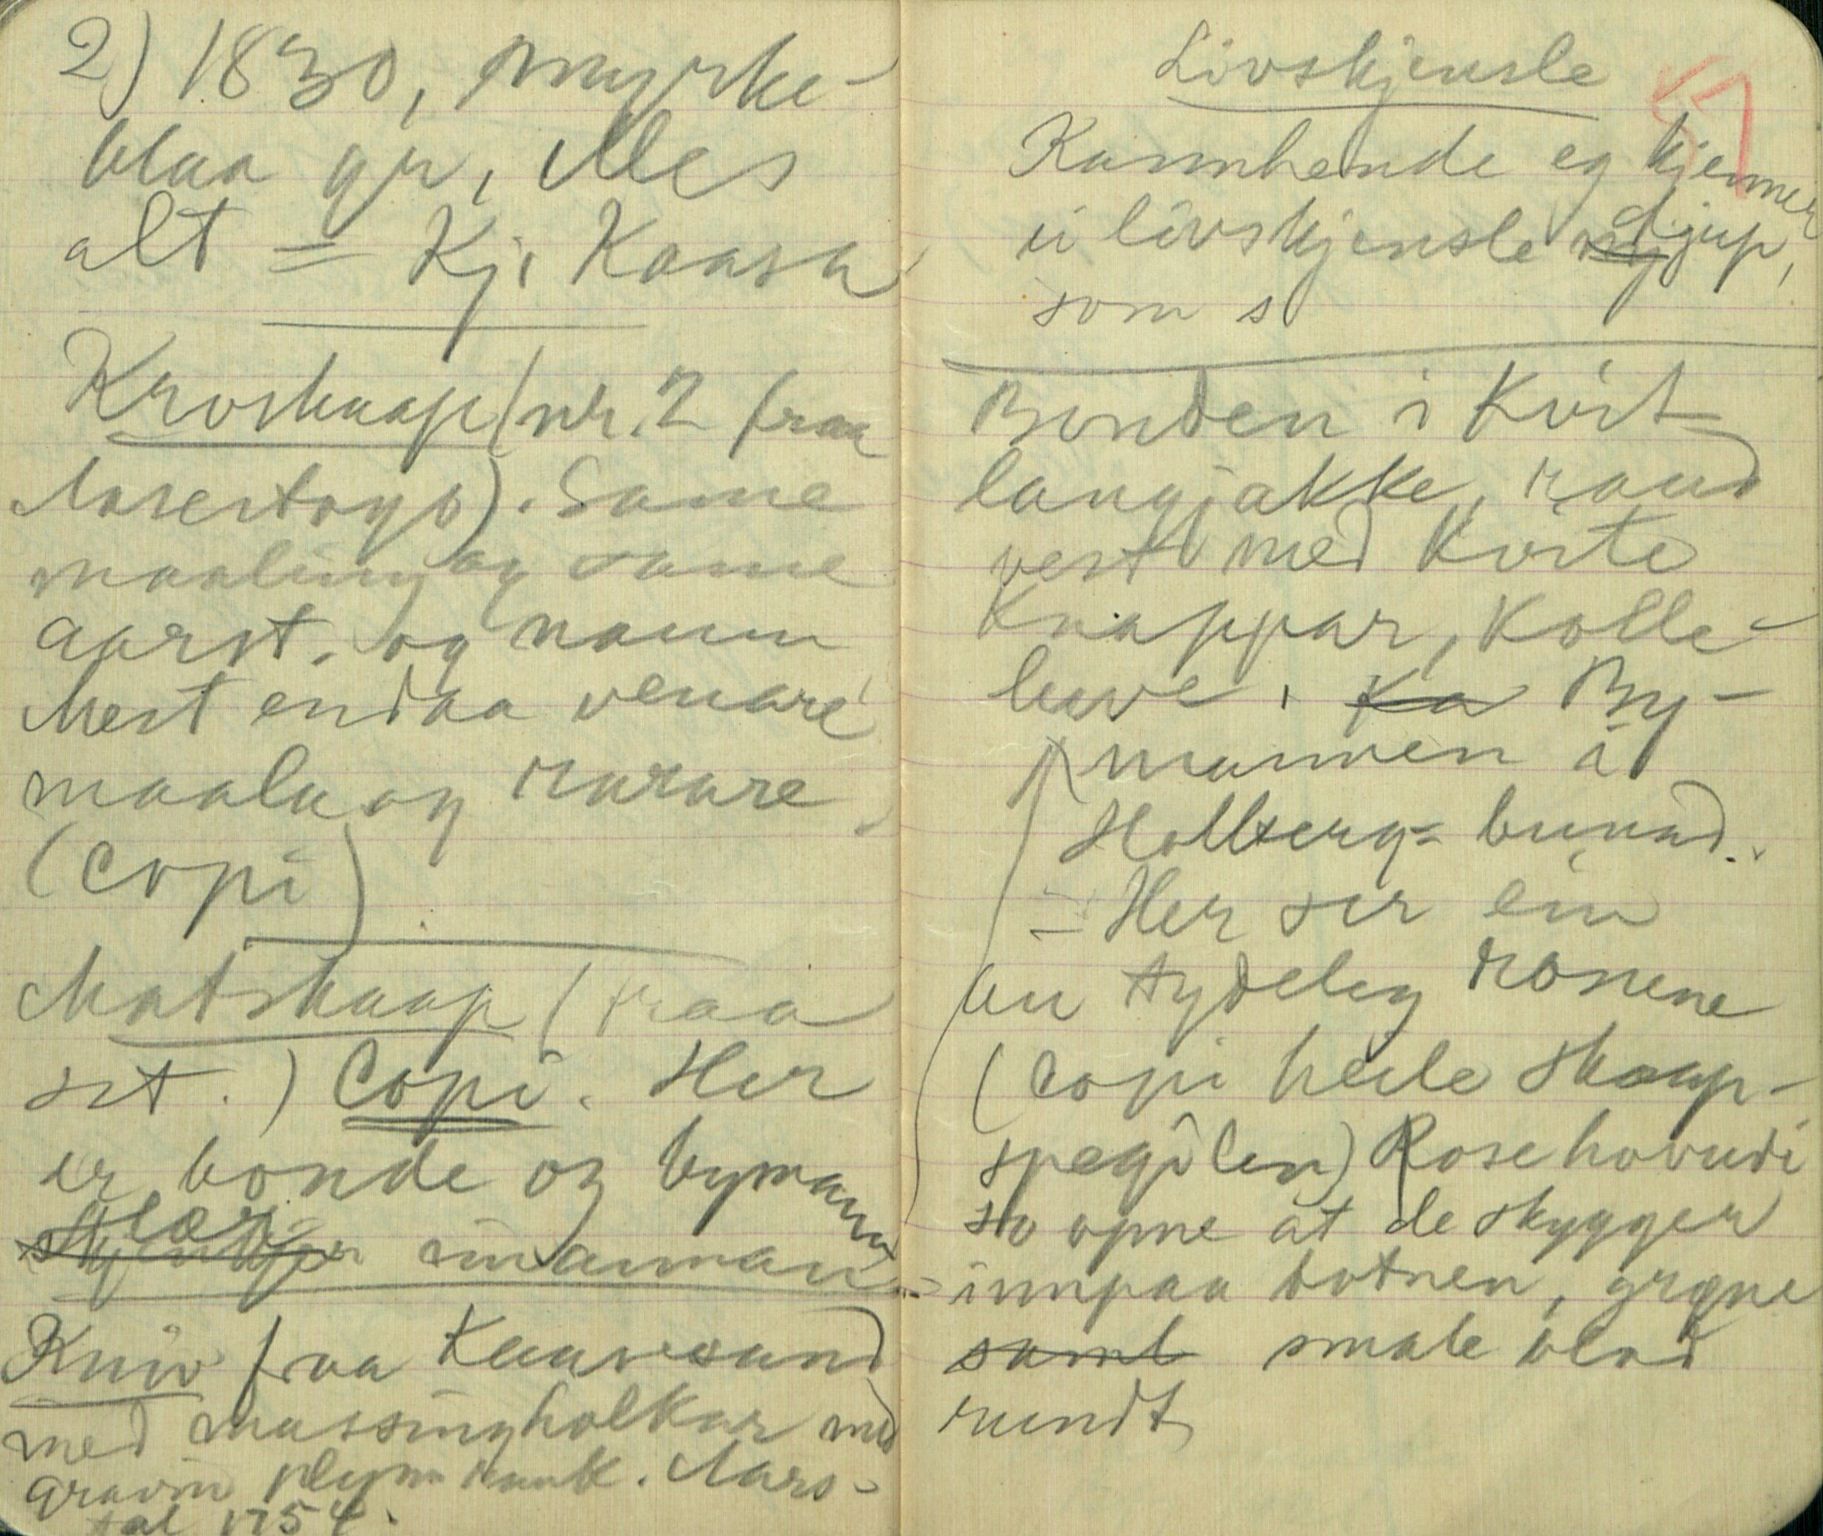 2) 1830, myrke-
blaa gr, Elles
alt = Kj. Kaasa
Kroskaap (nr. 2 fraa
Aasertoyo). Same
maaling og same
aarst. og namn
Mest endaa venare
maala og rarare
(Copi)
Matskaap (fraa
sst.) Copi. Her
er bonde og bymann
attmed einannan
Kniv fraa Kaavesund
med messingholkar med
gravin blyant. Aars-
tal 1754.
Livskjensle
57
Kannhende eg kjenner
ei livskjensle ny djup,
som s
Bonden i kvit
langjakke, raud
vest med kvite
knappar, kolle-
luve. Ka By-
mannen i
Holberg-bunad.
- Her ser ein
au tydeleg rosene
(Copi heile skaap-
spegilen) Rosehovudi
so opne at de skygger
innpaa botnen, grøne
saml smale blad
rundt